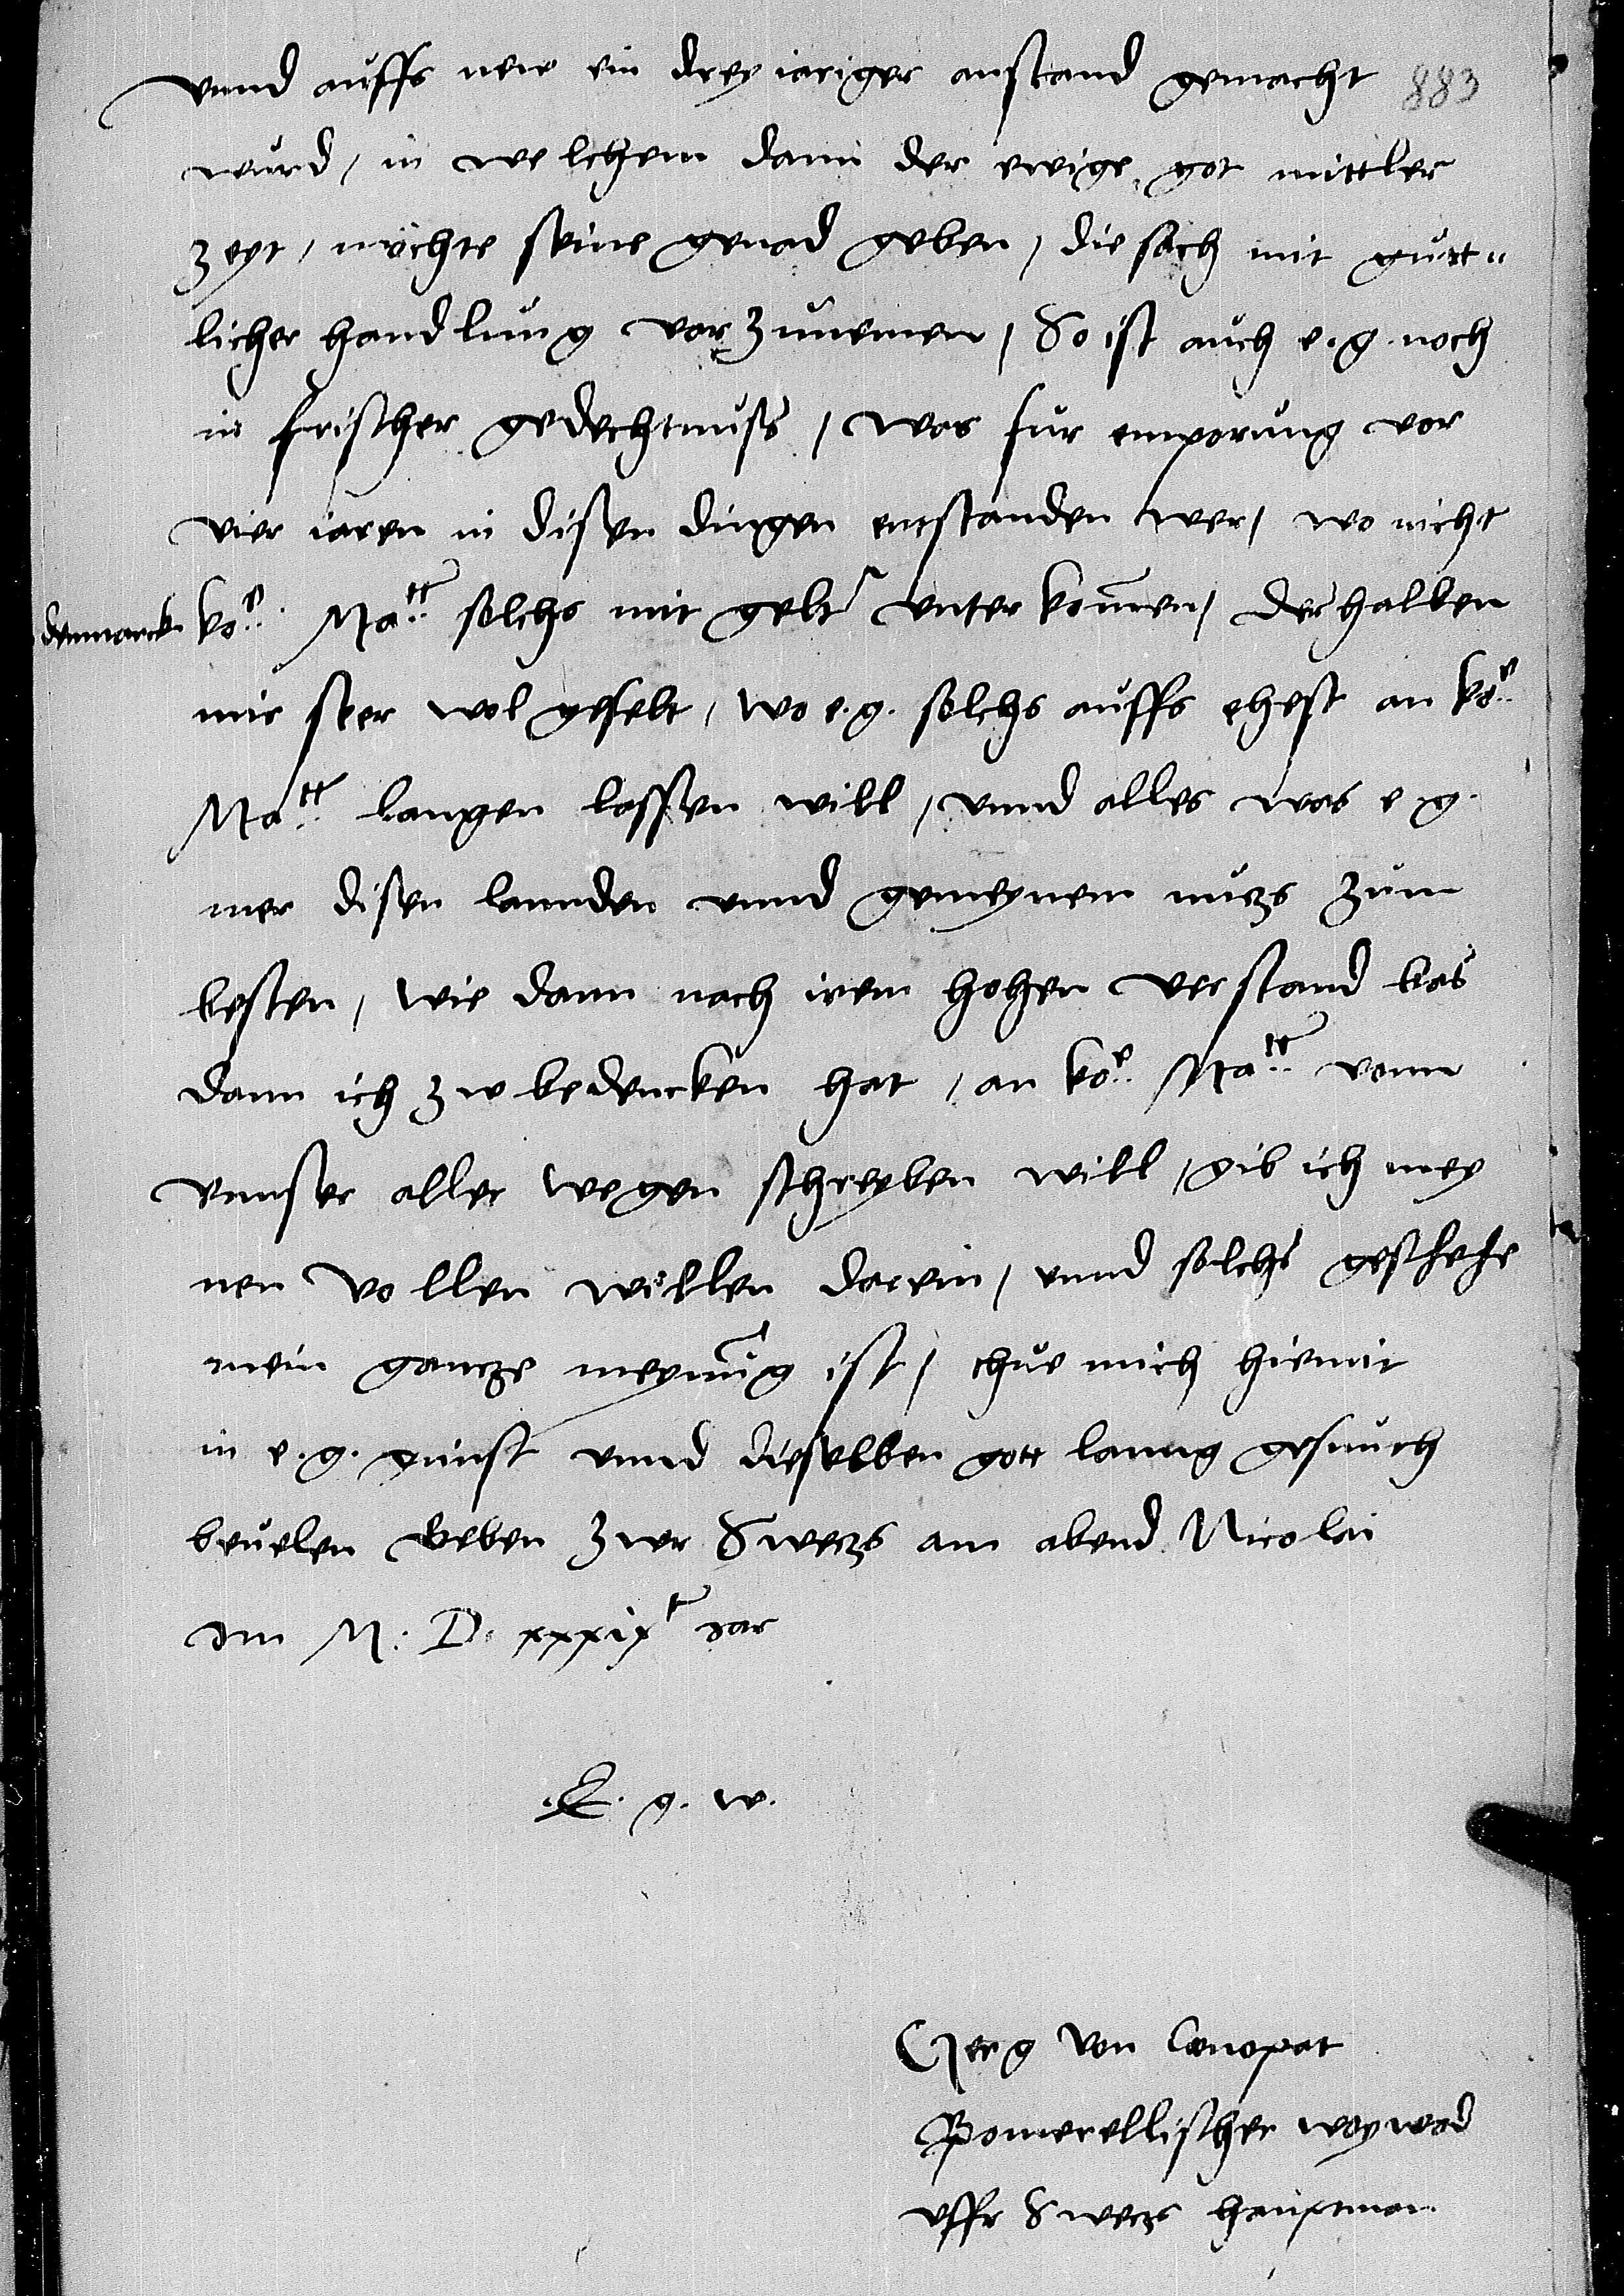 883
vnnd auffs new ein drey iariger anstand gemacht
wurd, in welchem dann der ewige got mittler
zeyt, mochte seine genad geben, die sach mit gutt„
licher handlung vorzunemen, So ist auch e. g. noch
in frischer gedechtnuss, was fur emporung vor
vier iaren in disen dingen entstanden wer, wo nicht
dennmarck
koe. Matt solchs mit gelt unterkomen, derhalben
mir seer wol gefelt, wo e. g. solchs auffs ehest an koe
Matt langen lassen will, vnnd alles was e g.
mer disen lannden vnnd gemeynem nutzs zum
besten, wie dann nach irem hohen verstand bas
dann ich zw bedencken hat, an koe Matt vonn
vnnser aller wegen schreyben will, gib ich mey
nen vollen willen darein, vnnd solchs geschehe
mein gantze meynung ist, thue mich hiemit
in e. g. gunst vnnd dieselben gott lanng gesunth
beuelen Geben zwr Swetzs am abend Nicolai
Im M. D. xxxixt Iar
.E. g. w.
Gerg von Conopat
Pomerellischer woywod
vffr Swetzs hauptman